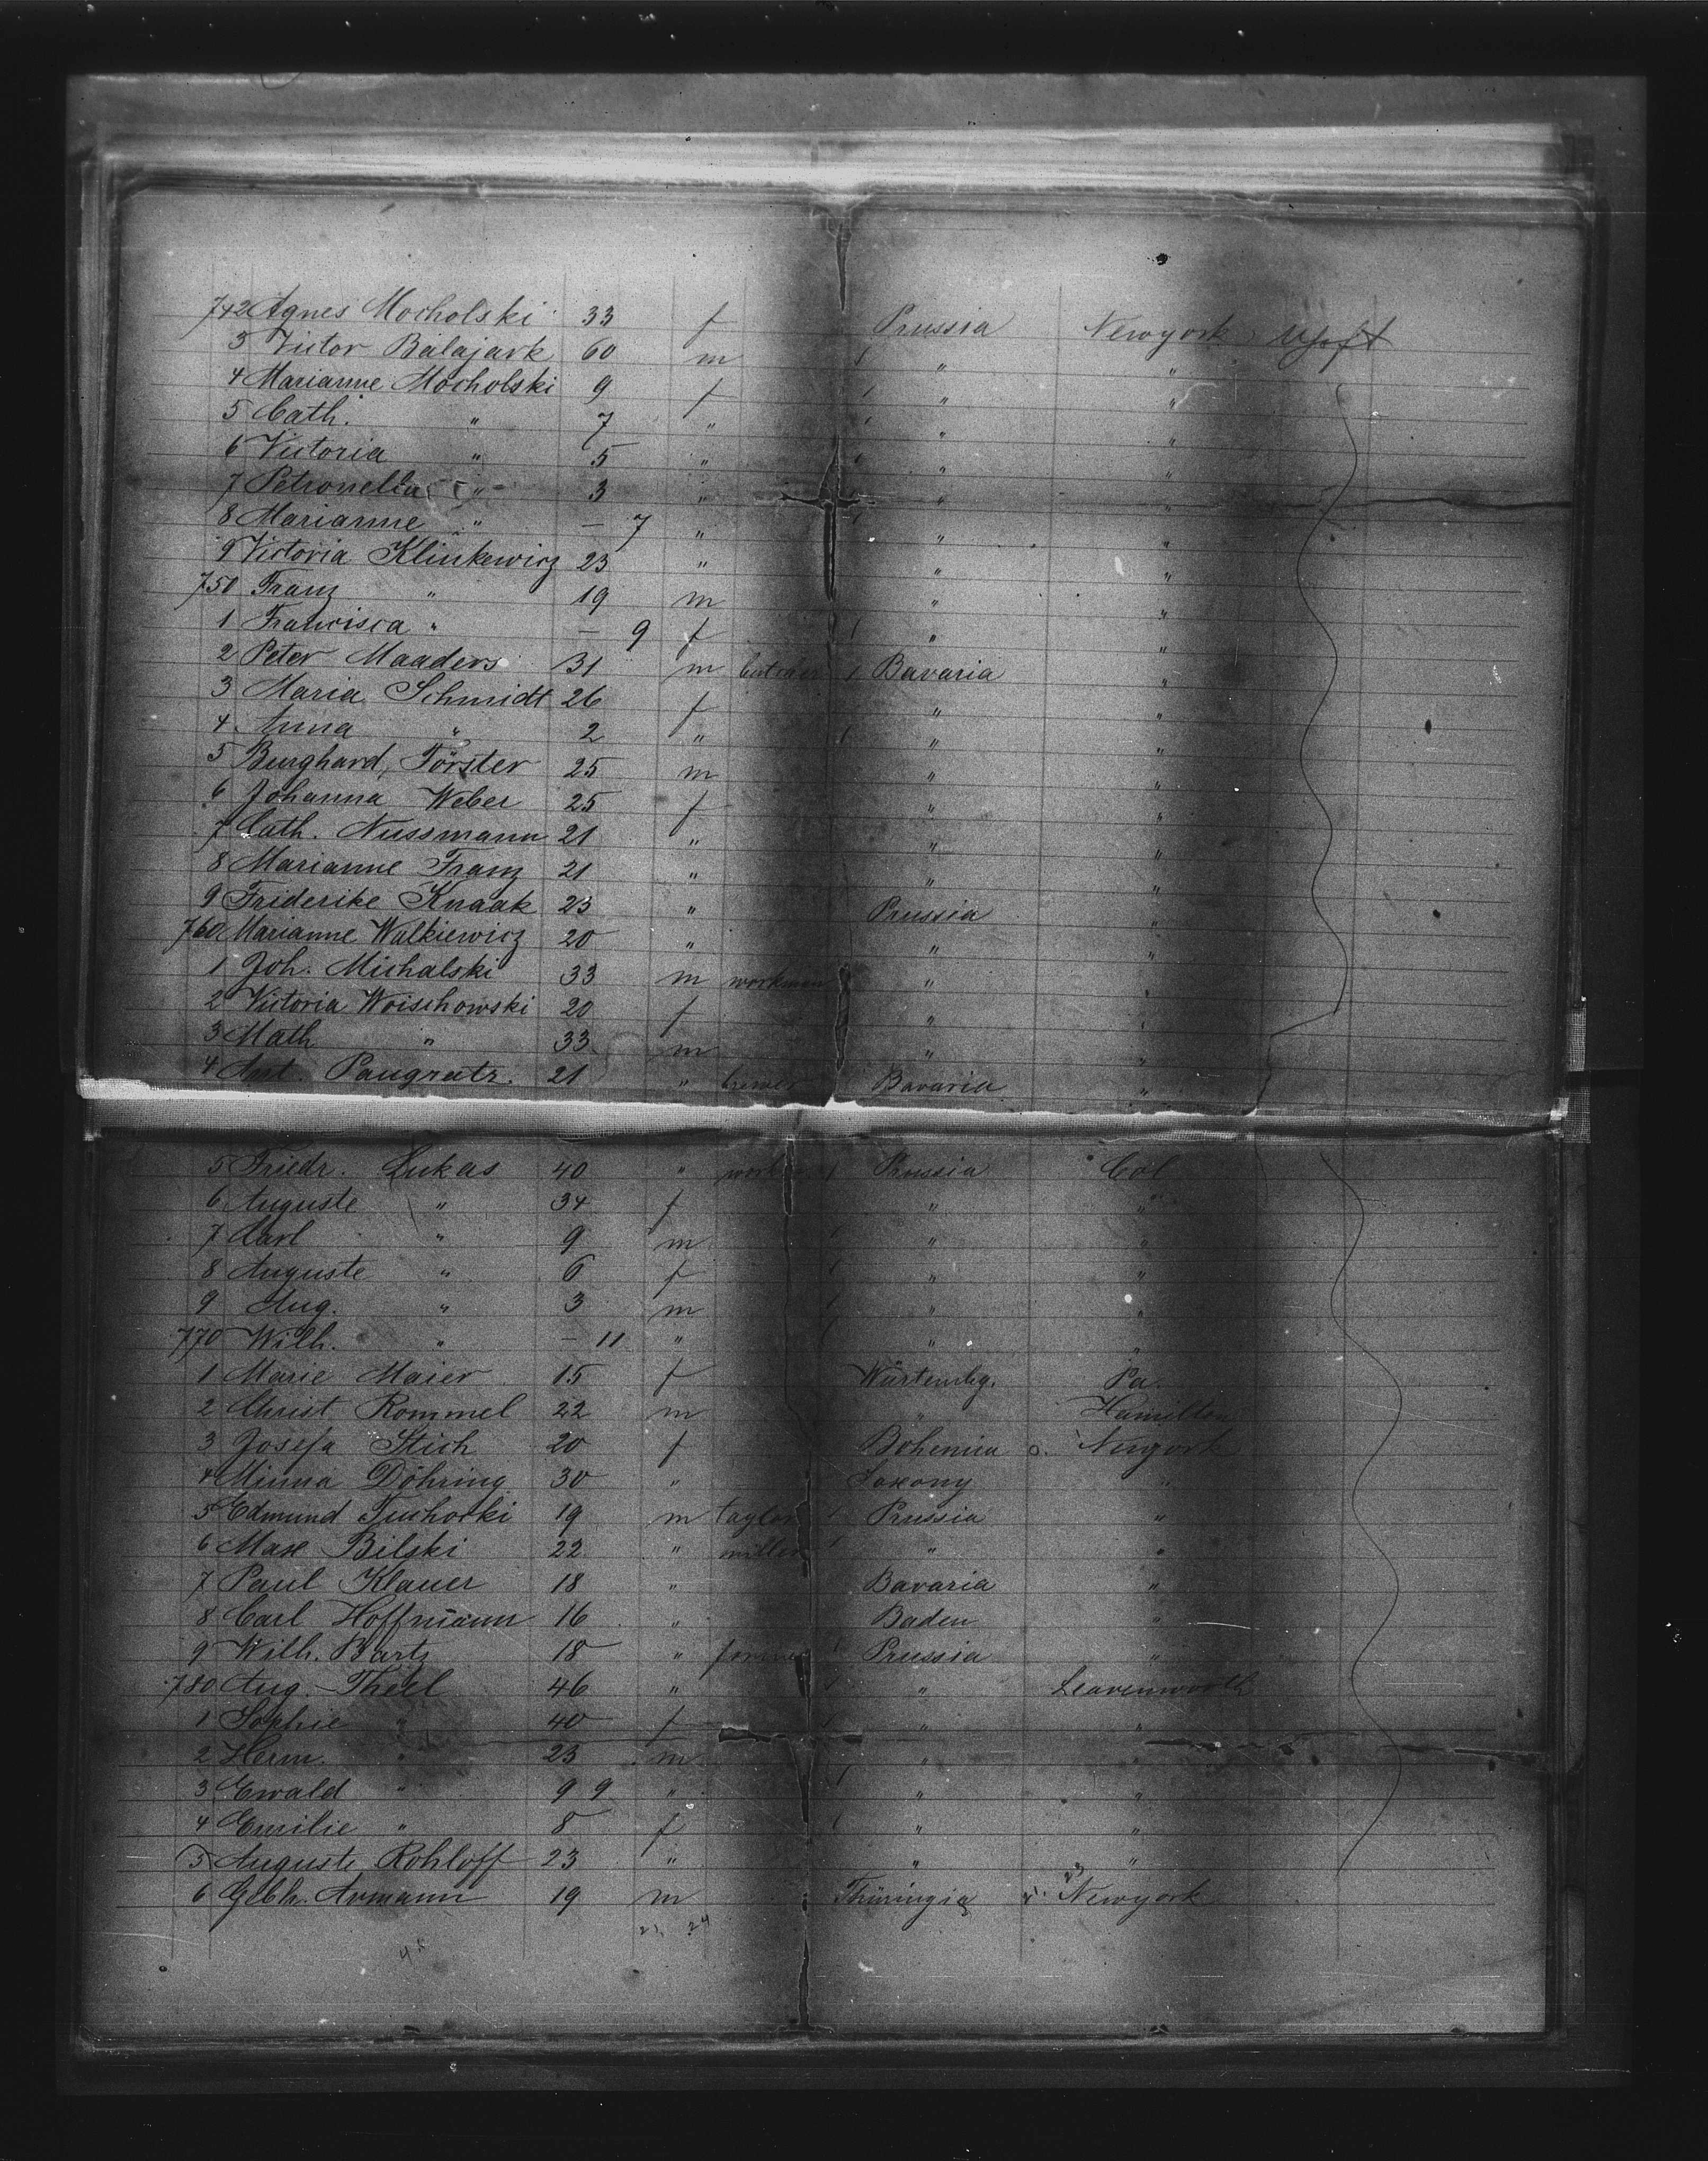 742 Agnes Mocholski 33 f Prussia Newyork
3 Victor Balajark 60 m 1 " "
4 Marianne Mocholski 9 f 1 " "
5 Cath. " 7 " 1 " "
6 Victoria " 5 " 1 " "
7 Petronella " 3 " " "
8 Marianne " — 7 " 1 " "
9 Victoria Klinkewicz 23 " " "
750 Franz " 19 m " "
1 Francisca " — 9 f 1 " "
2 Peter Maaders 31 m 1 Bavaria "
3 Maria Schmidt 26 f " "
4 Anna " 2 " 1 " "
5 Burghard Förster 25 m " "
6 Johanna Weber 25 f " "
7 Cath. Nussmann 21 " " "
8 Marianne Franz 21 " " "
9 Friderike Knaak 23 " Prussia "
760 Marianne Walkiewicz 20 " " "
1 Joh. Michalski 33 m workman " "
2 Victoria Woischowski 20 f " "
3 Math " 33 m " "
4 Ant. Pangratz. 21 " brewer Bavaria "
5 Friedr. Lukas 40 " 1 Prussia Col
6 Auguste " 34 f " "
7 Carl " 9 m 1 " "
8 Auguste " 6 f 1 " "
9 Aug. " 3 m 1 " "
770 Wilh. " — 11 " 1 " "
1 Marie Maier 15 f Würtembg. Pa.
2 Christ. Rommel 22 m " Hamilton
3 Josefa Stich 20 f Bohemia Newyork
4 Minna Döhring 30 " Saxony "
5 Edmund Tuchotki 19 m taylor 1 Prussia "
6 Max Bilski 22 " miller 1 " "
7 Paul Klauer 18 " Bavaria "
8 Carl Hoffmann 16 " Baden "
9 Wilh. Bartz 18 " 1 Prussia "
780 Aug. Theel 46 " 1 " Leavenworth
1 Sophie " 40 f 1 " "
2 Herm. " 23 m " "
3 Ewald " 9 9 " 1 " "
4 Emilie " 8 f 1 " "
5 Auguste Rohloff 23 " " "
6 Gebh. Armann 19 m Thüringia Newyork